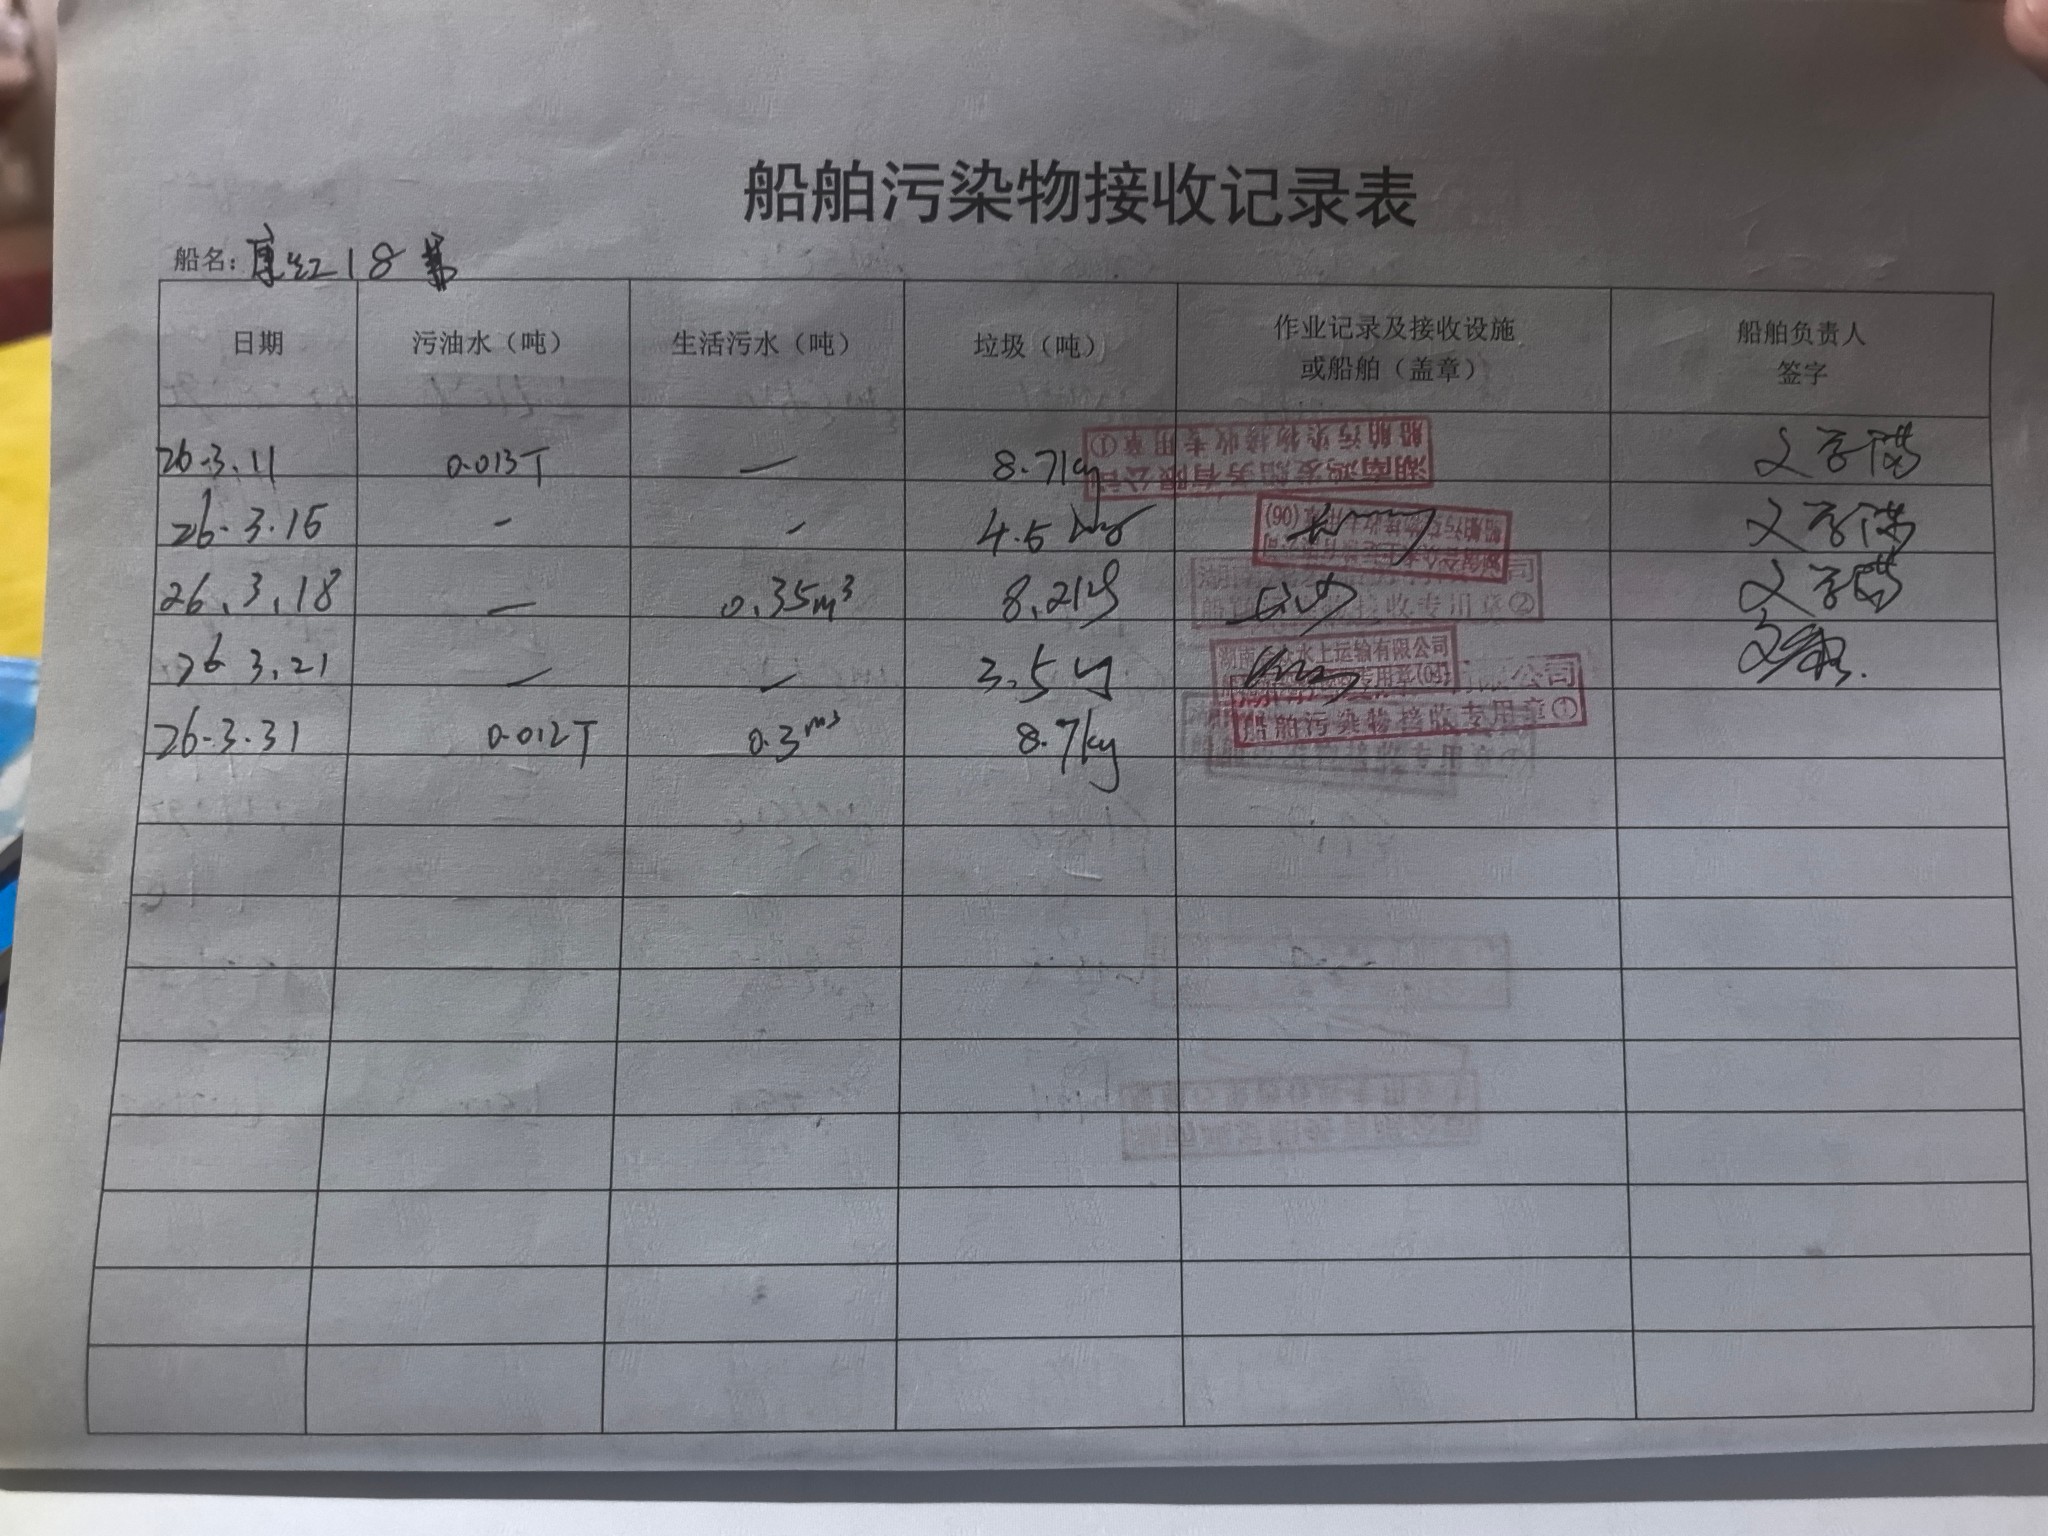 船舶污染物接收记录表
船名: 18
日期 污油水（吨） 生活污水（吨） 垃圾（吨） 作业记录及接收设施或船舶（盖章） 船舶负责人签字
26.3.11 0.013T — 8.71kg 湖南鸿发船务有限公司 船舶污染物接收专用章①
26.3.15 - - 4.5 (06)
26.3.18 — 0.35m³ 8.21kg 接收专用章②
26.3.21 — — 3.5kg 水上运输有限公司 专用章
26.3.31 0.012T 0.3m³ 8.7kg 船舶污染物接收专用章①